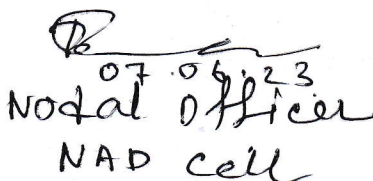 07.06.23
Nodal Officer
NAD Cell